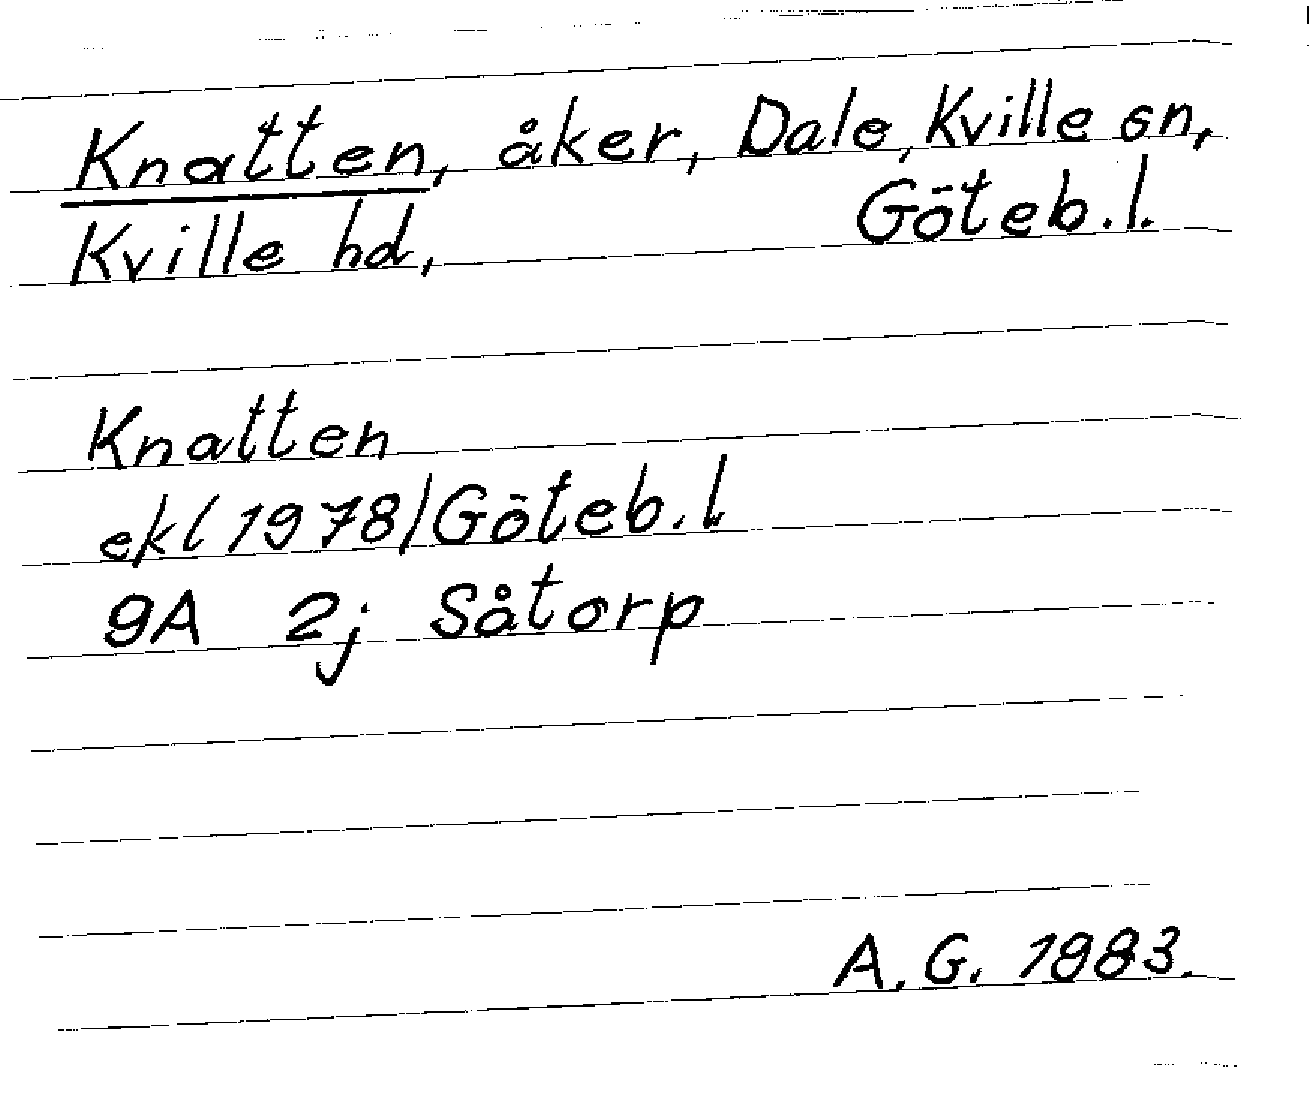 Knatten, åker, Dale, Kville sn,
Kville hd, Göteb.l.
Knatten
ekl 1978/Göteb.l.
9A 2j Såtorp
A.G. 1983.